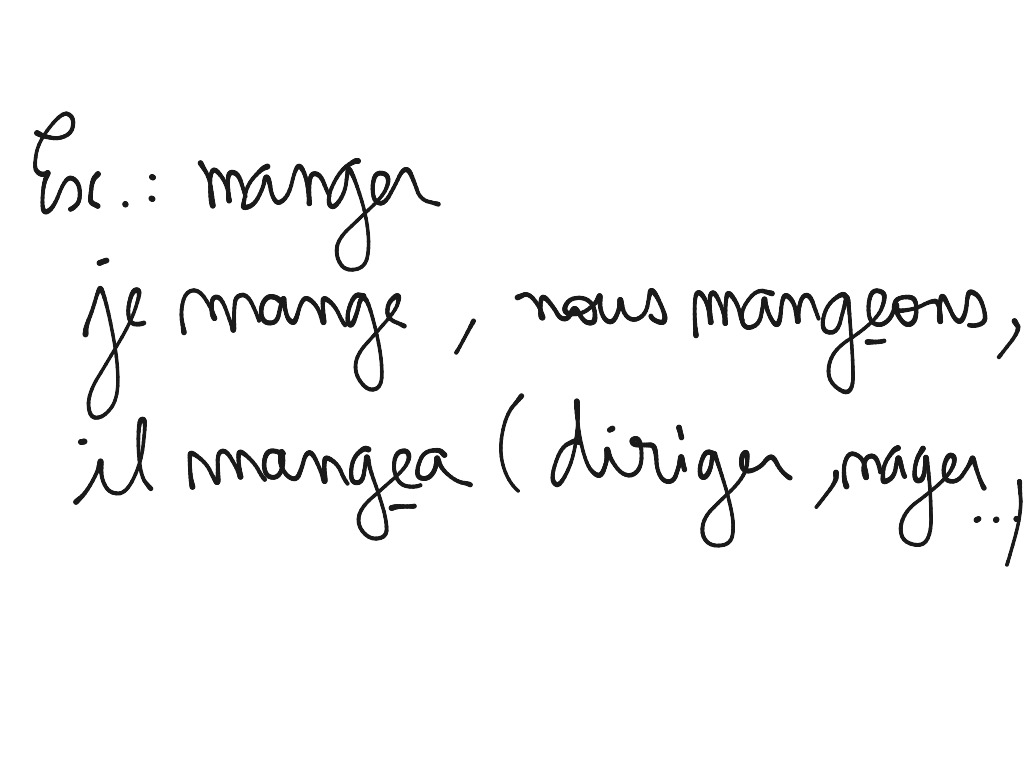 Ex.: manger
je mange, nous mangeons,
il mangea (diriger, nager...)